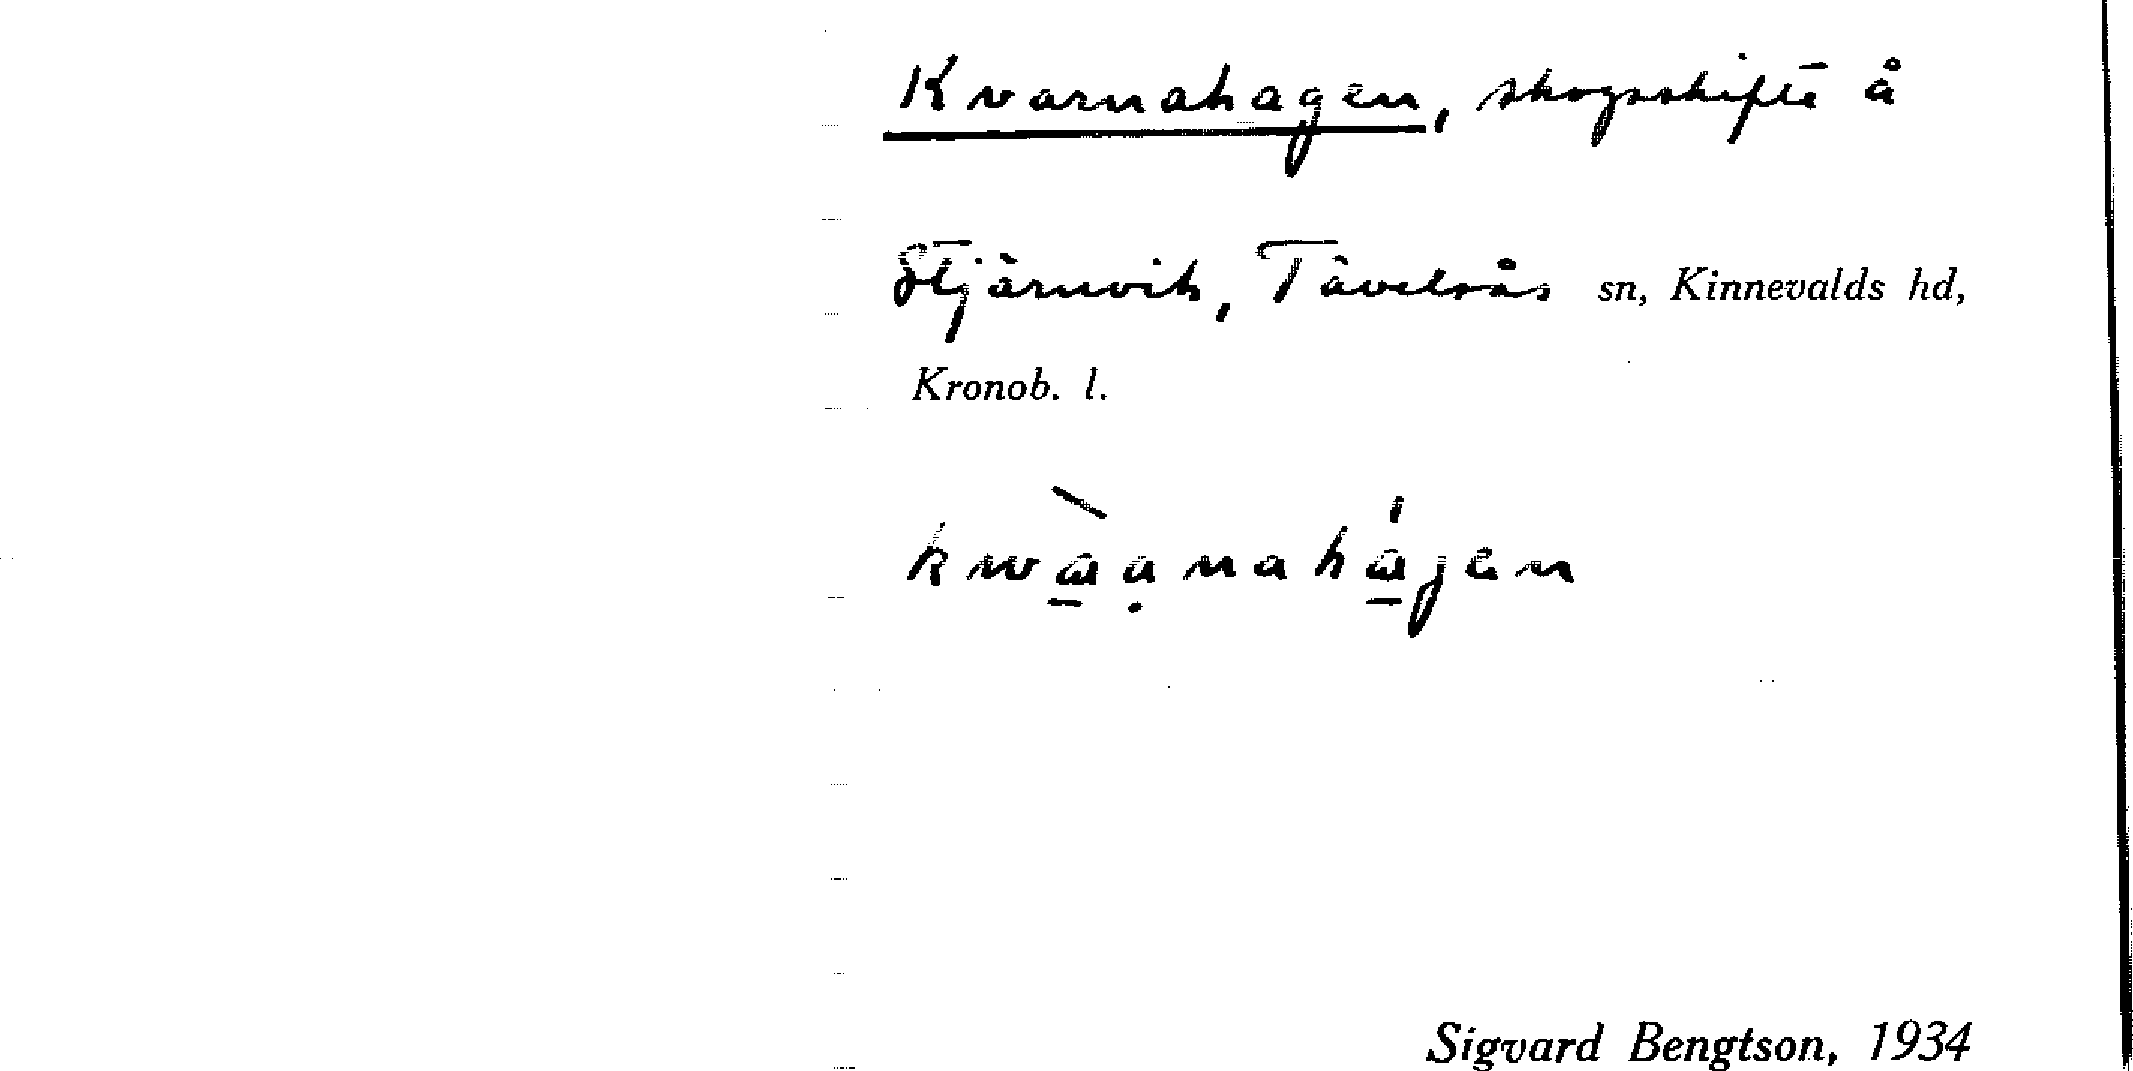 Kvarnahagen, skogsskifte å
Stjärnvik, Tävelsås sn, Kinnevalds hd,
Kronob. l.
Sigvard Bengtson, 1934